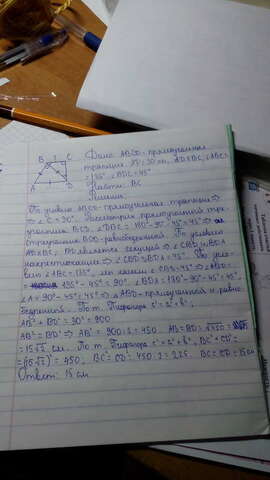 B 1 C
A D
Дано: ABCD - прямоугольная
трапеция. AD = 30 см, AD∥BC, ∠ABC=
=135°, ∠BDC = 45°
Найти: BC
Решение:
По условию ABCD - прямоугольная трапеция ⇒
⇒ ∠C = 90°. Рассмотрим прямоугольный тре-
угольник BCD. ∠DBC = 180° - 90° - 45° = 45° ⇒
треугольник BCD - равнобедренный. По условию
AD∥BC, BD является секущей ⇒ ∠CBD и ∠BDA
накрестлежащие ⇒ ∠CBD = BDA = 45°. По усло-
вию ∠ABC = 135°, мы нашли ∠CBD = 45° ⇒ ∠ABD =
= 135° - 45° = 90°. ∠BDA = 180° - 90° - 45° = 45°
∠A = 90° - 45° = 45° ⇒ ∠ABD - прямоугольный и равно-
бедренный. По т. Пифагора c² = a² + b²,
AB² + BD² = 30² = 900
AB² = BD² ⇒ AB² = 900 : 2 = 450. AB = BD = √450 =
= 15√2 см. По т. Пифагора c² = a² + b², BC² + CD² =
= (15√2)² = 450, BC² = CD² = 450 : 2 = 225. BC = CD = 15 см
Ответ: 15 см